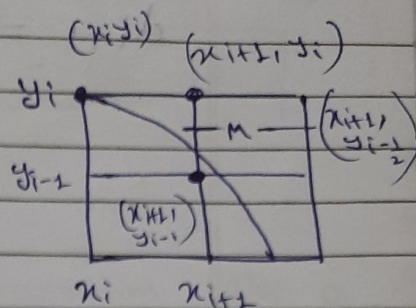 (xi yi)
(xi+1, yi)
yi
M
(xi+1, yi-1/2)
yi-1
(xi+1, yi-1)
xi
xi+1